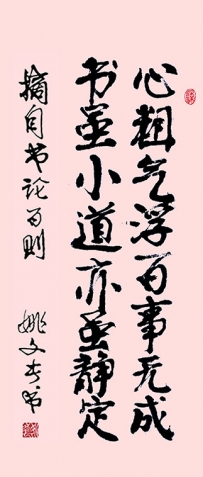 心粗气浮百事无成
书虽小道亦虽静定
摘自书论百则
姚文奎书